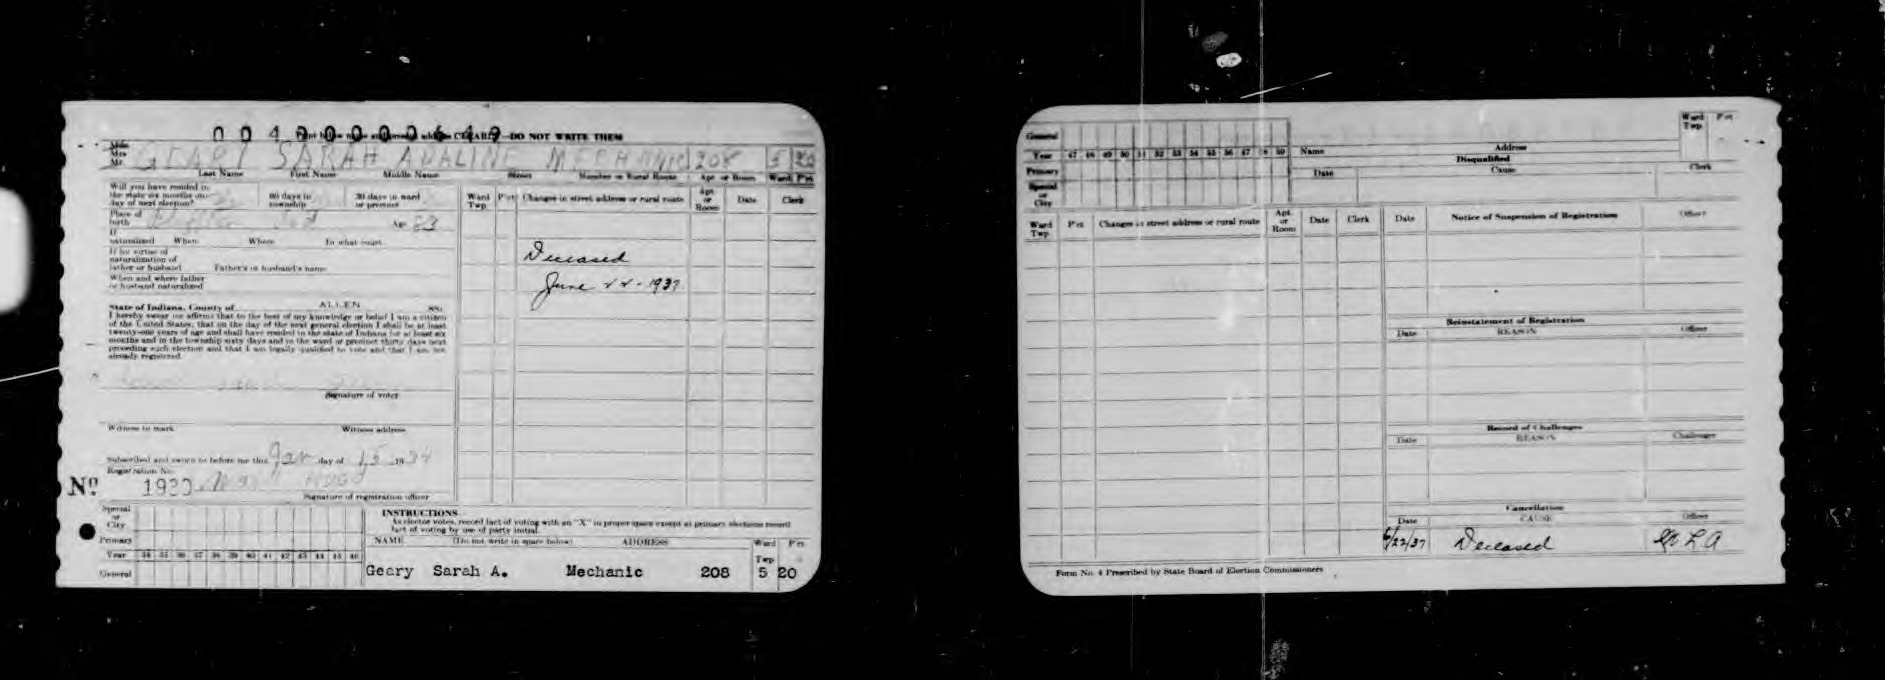 0042000649
Print below name and address CLEARLY—DO NOT WRITE THEM
Miss
Mrs
Mr.
GEARY SARAH ADALINE MECHANIC 208 5 20
Last Name First Name Middle Name Street Number or Rural Route Apt or Room Ward P'ct
Will you have resided in
the state six months on
day of next election?
60 days in
township
30 days in ward
or precinct
Place of
birth
Age 83
If
naturalized When Where In what court
If by virtue of
naturalization of
father or husband Father's or husband's name
When and where father
or husband naturalized
State of Indiana, County of ALLEN SS:
I hereby swear (or affirm) that to the best of my knowledge or belief I am a citizen
of the United States; that on the day of the next general election I shall be at least
twenty-one years of age and shall have resided in the state of Indiana for at least six
months and in the township sixty days and in the ward or precinct thirty days next
preceding such election and that I am legally qualified to vote and that I am not
already registered.
Signature of voter
Witness to mark Witness address
Subscribed and sworn to before me this Jan day of 15 1934
Registration No.
No 1930
Signature of registration officer
Ward
Twp P'ct Changes in street address or rural route Apt
or
Room Date Clerk
Deceased
June 22-1937
Special
or
City
Primary
Year 34 35 36 37 38 39 40 41 42 43 44 45 46
General
INSTRUCTIONS
As elector votes, record fact of voting with an "X" in proper space except at primary elections record
fact of voting by use of party initial.
NAME (Do not write in space below) ADDRESS Ward
Twp P'ct
Geary Sarah A. Mechanic 208 5 20
General
Year 47 48 49 50 51 52 53 54 55 56 57 58 59
Primary
Special
or
City
Name Address Ward
Twp P'ct
Disqualified
Date Cause Clerk
Ward
Twp P'ct Changes in street address or rural route Apt
or
Room Date Clerk
Date Notice of Suspension of Registration Officer
Reinstatement of Registration
Date REASON Officer
Record of Challenges
Date REASON Challenger
Cancellation
Date CAUSE Officer
6/22/37 Deceased
Form No. 4 Prescribed by State Board of Election Commissioners